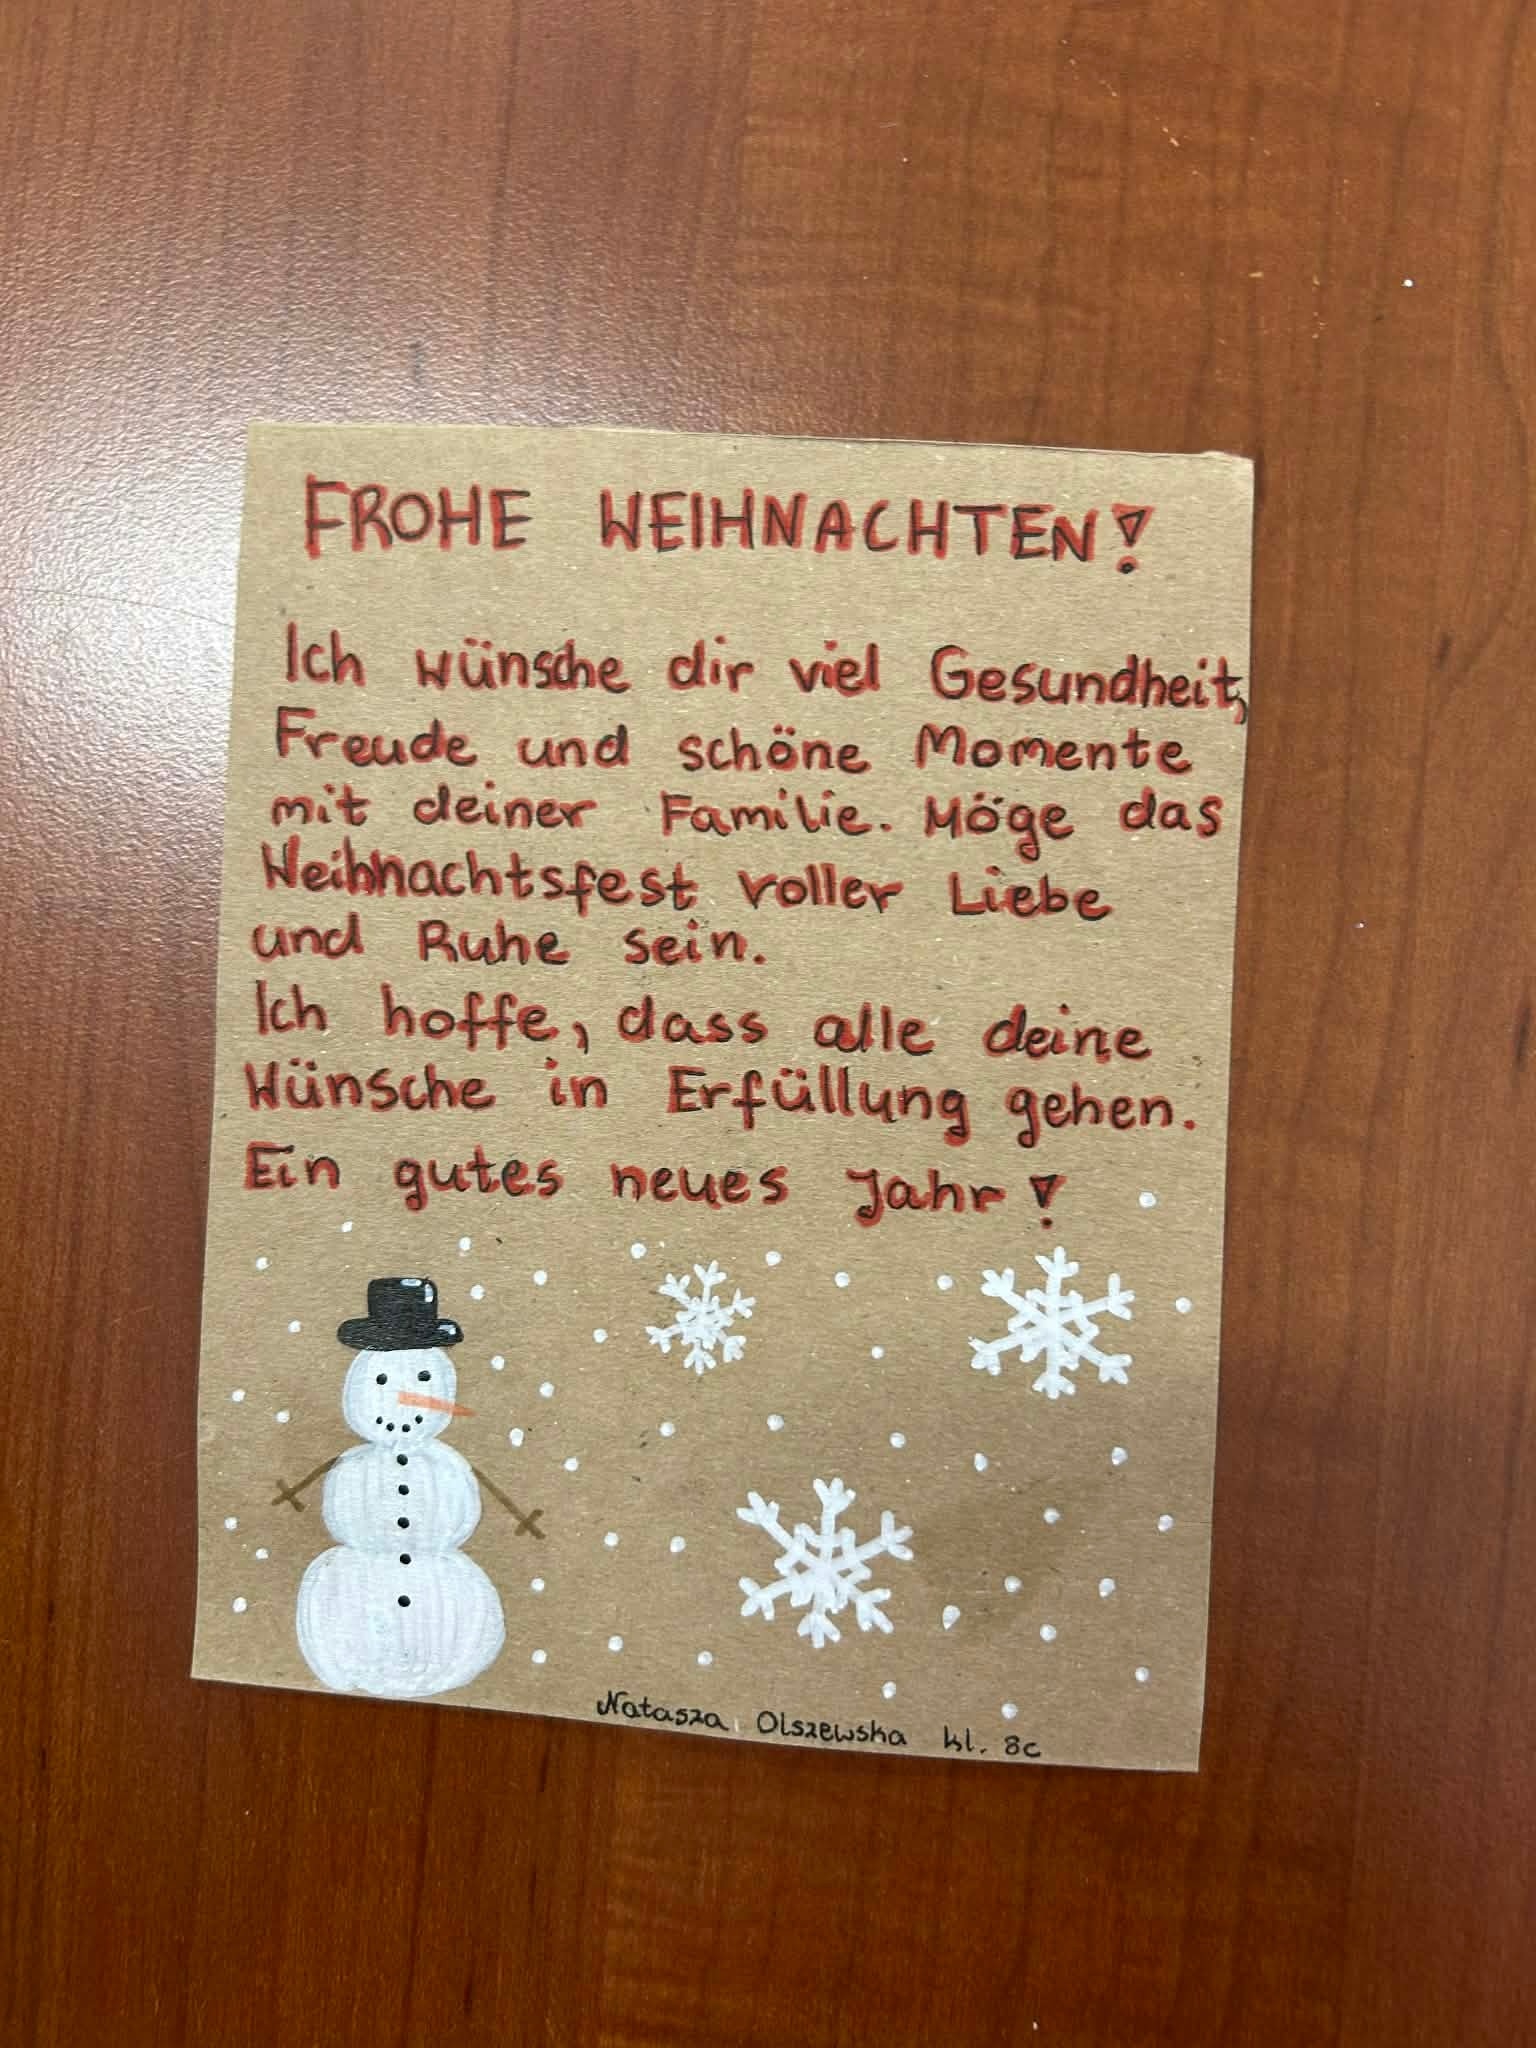 FROHE WEIHNACHTEN!
Ich wünsche dir viel Gesundheit,
Freude und schöne Momente
mit deiner Familie. Möge das
Weihnachtsfest voller Liebe
und Ruhe sein.
Ich hoffe, dass alle deine
Wünsche in Erfüllung gehen.
Ein gutes neues Jahr!
Natasza Olszewska kl. 8c